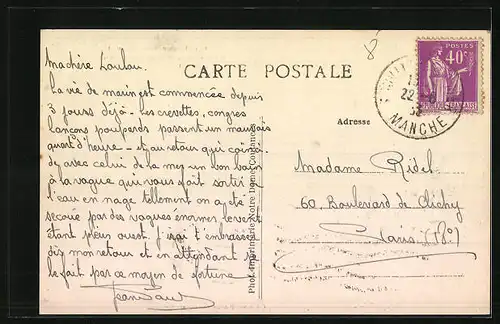 Ma chère Loulou.
La vie de marin est commencée depuis
3 jours déjà. Les crevettes, congres
lançons poupards passent un mauvais
quart d'heure — et au retour qui coïnci
de avec celui de la mer un bon bain
à la vague qui vous fait sortir
l'eau en nage tellement on a été
secoué par des vagues énormes
étant pleus ouest J'irai t'embrasser
dix mon retour et en attendant je
le fait par ce moyen de fortune
Jean Paul
CARTE POSTALE
8
POSTES
40c
22
MANCHE
Adresse
Madame Ridel
60 Boulevard de Clichy
Paris